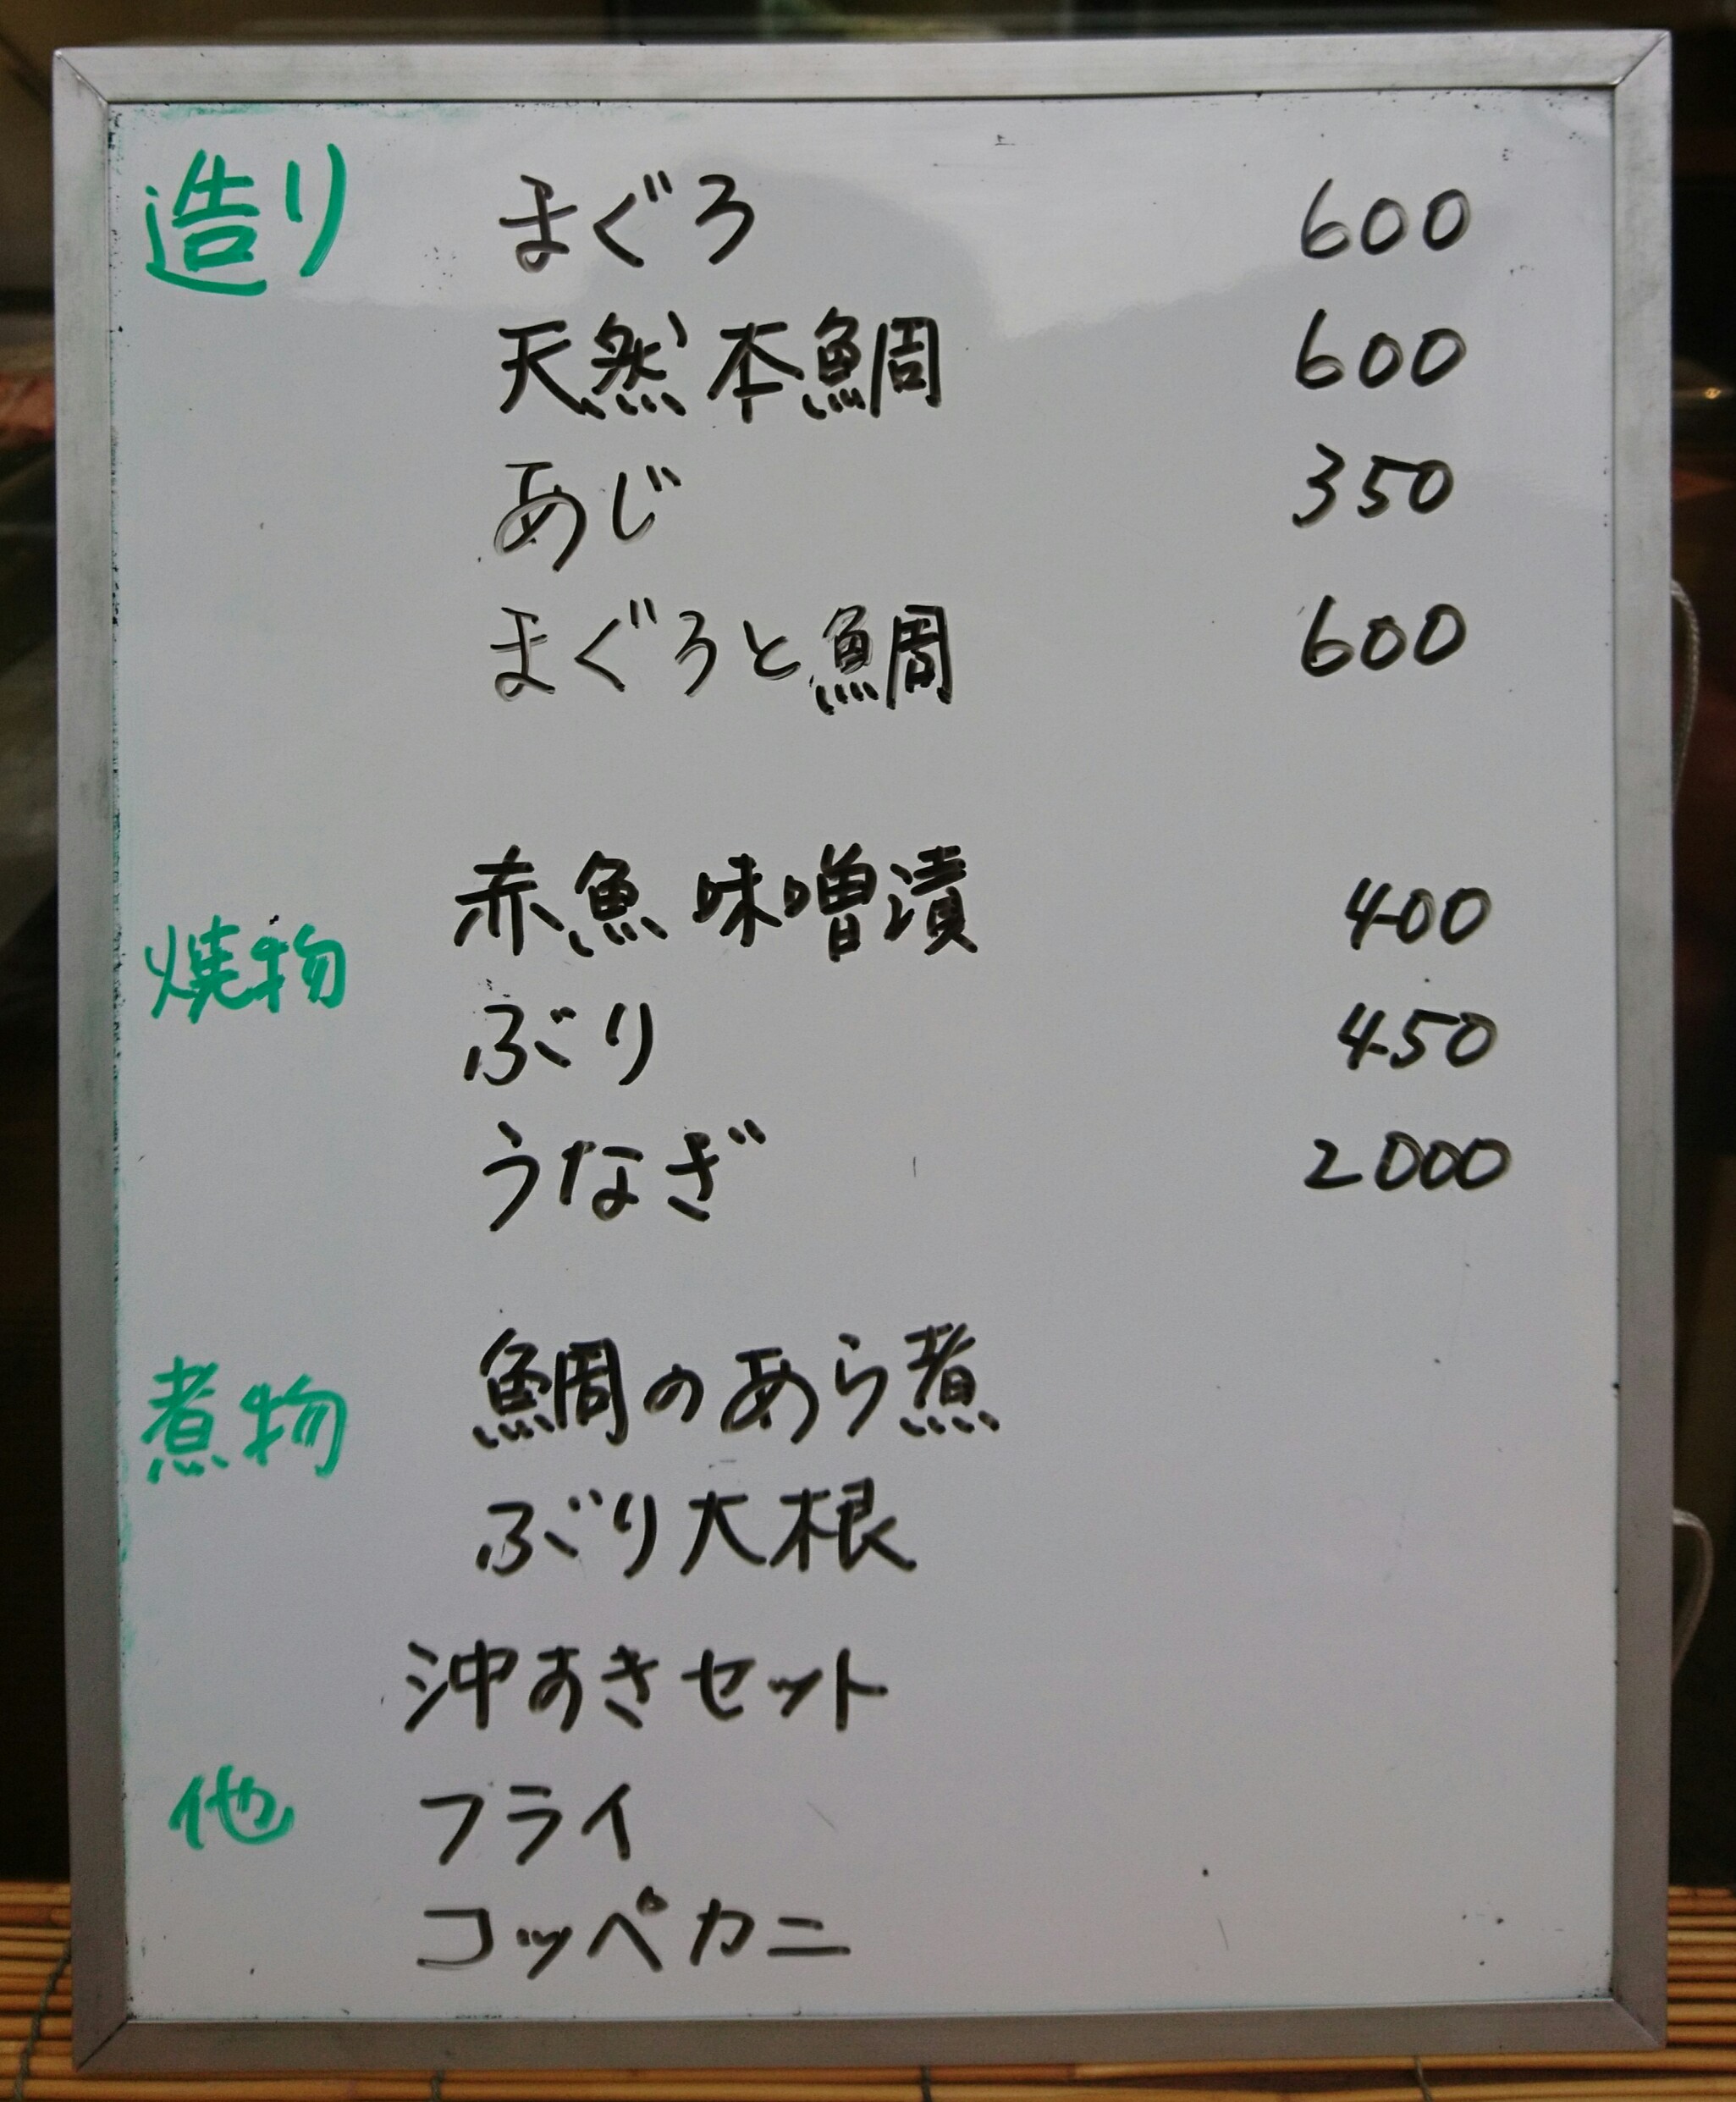 造り まぐろ 600
天然本鯛 600
あじ 350
まぐろと鯛 600
赤魚味噌漬 400
焼物
ぶり 450
うなぎ 2000
鯛のあら煮
煮物
ぶり大根
沖すきセット
他 フライ
コッペカニ